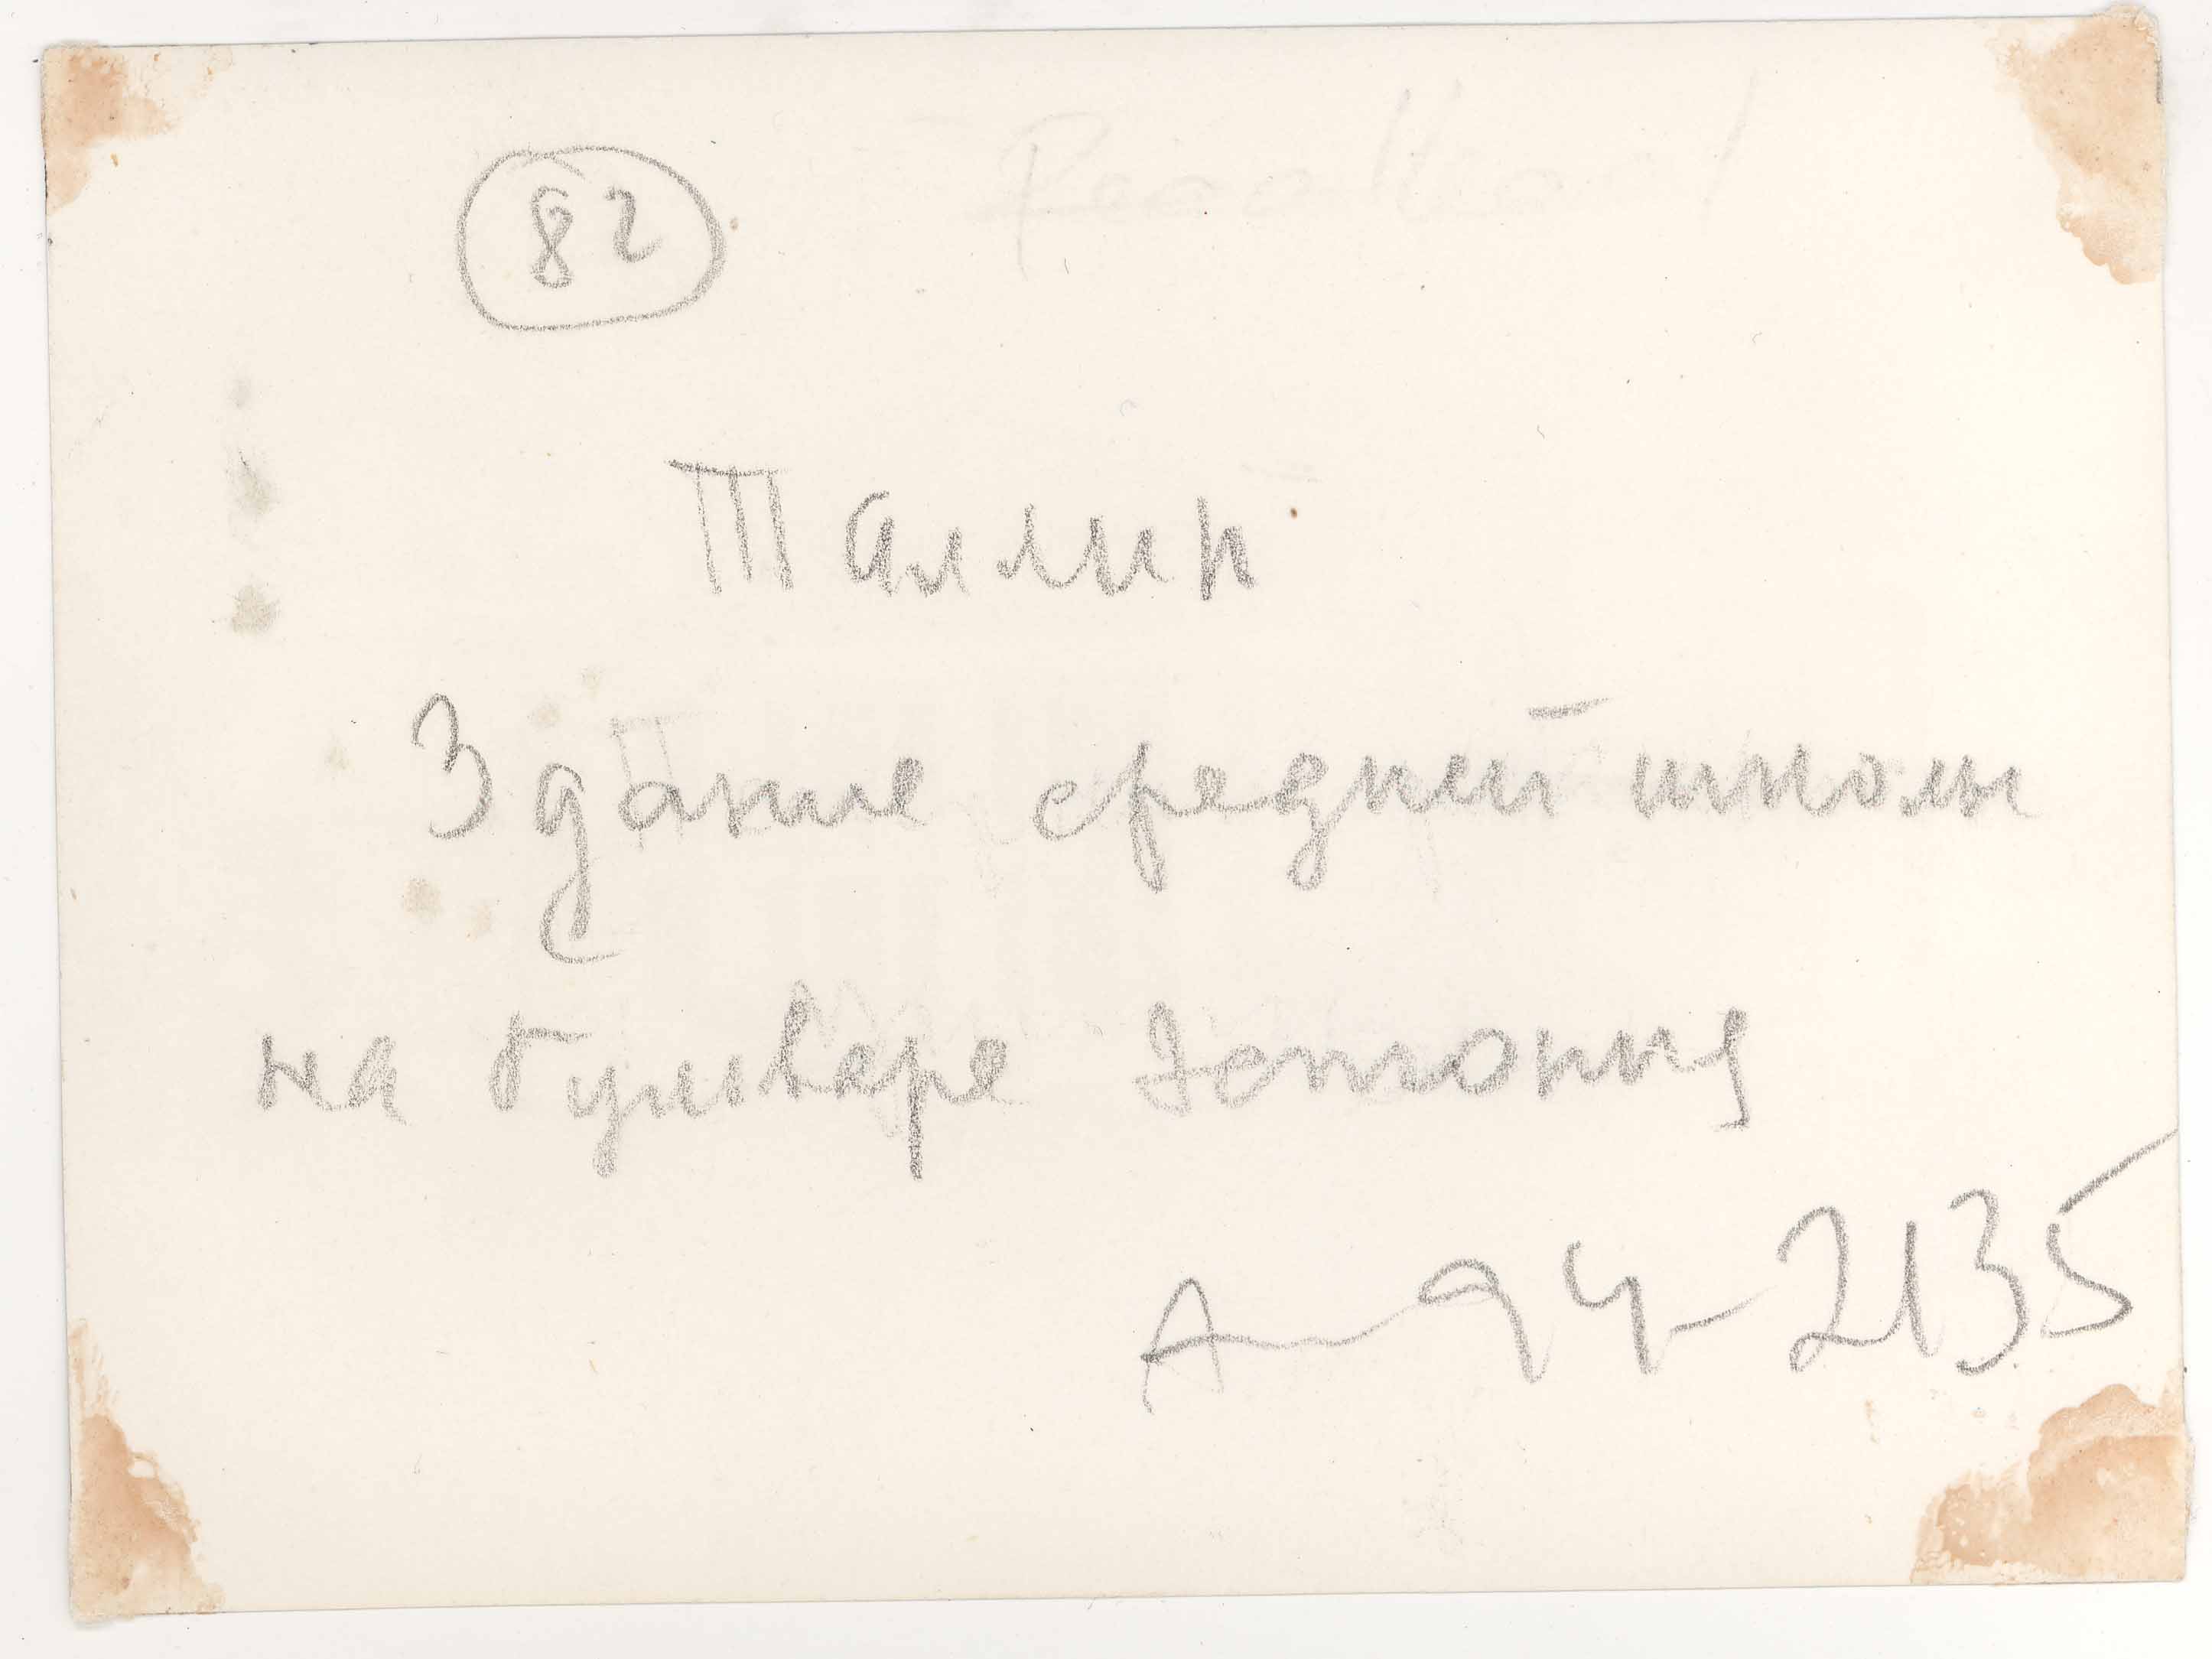 82
Таллин
Здание средней школы
на бульваре Эстония
А-94-2135